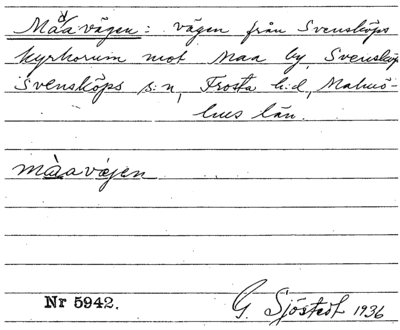 Maavägen: vägen från Svensköps
kyrkorum mot Maa by, Svensköp
Svensköps s:n, Frosta h:d, Malmö-
hus län.
màavägen
Nr 5942.
G. Sjöstedt 1936